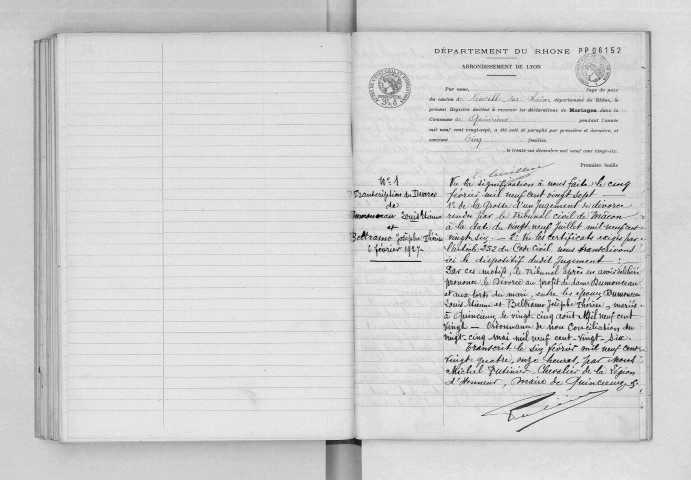 DÉPARTEMENT DU RHONE PP 06152
ARRONDISSEMENT DE LYON
Par nous, Juge de paix
du canton de Neuville sur Saône, département du Rhône, le
présent Registre destiné à recevoir les déclarations de Mariages dans la
Commune de Quincieux pendant l'année
mil neuf cent vingt-sept, a été coté et paraphé par première et dernière, et
contient Cinq feuilles
, le trente-un décembre mil neuf cent vingt-six.
Première feuille
N° 1
Transcription du Divorce
de
Dumonceau Louis Etienne
et
Beltramo Josèphe Thérèse
6 février 1927
Vu la signification à nous faite le cinq
février mil neuf cent vingt sept
1° de la Grosse d'un Jugement de divorce
rendu par le tribunal civil de Macon
à la date du vingt neuf Juillet mil neuf cent
vingt six. — 2° Vu les certificats exigés par
l'article 252 du Code Civil, nous transcrivons
ici le dispositif dudit Jugement :
Par ces motifs, le tribunal après en avoir délibéré
prononce le Divorce au profit de dame Dumonceau
et aux torts du mari, entre les époux Dumonceau
Louis Etienne et Beltramo Josèphe Thérèse, mariés
à Quincieux le vingt-cinq août mil neuf cent
vingt — Ordonnance de non Conciliation du
vingt-cinq mai mil neuf cent-vingt-six
Transcrit le six février mil neuf cent
vingt quatre, onze heures, par Nous
Michel Dutinier, Chevalier de la Légion
d'Honneur, maire de Quincieux